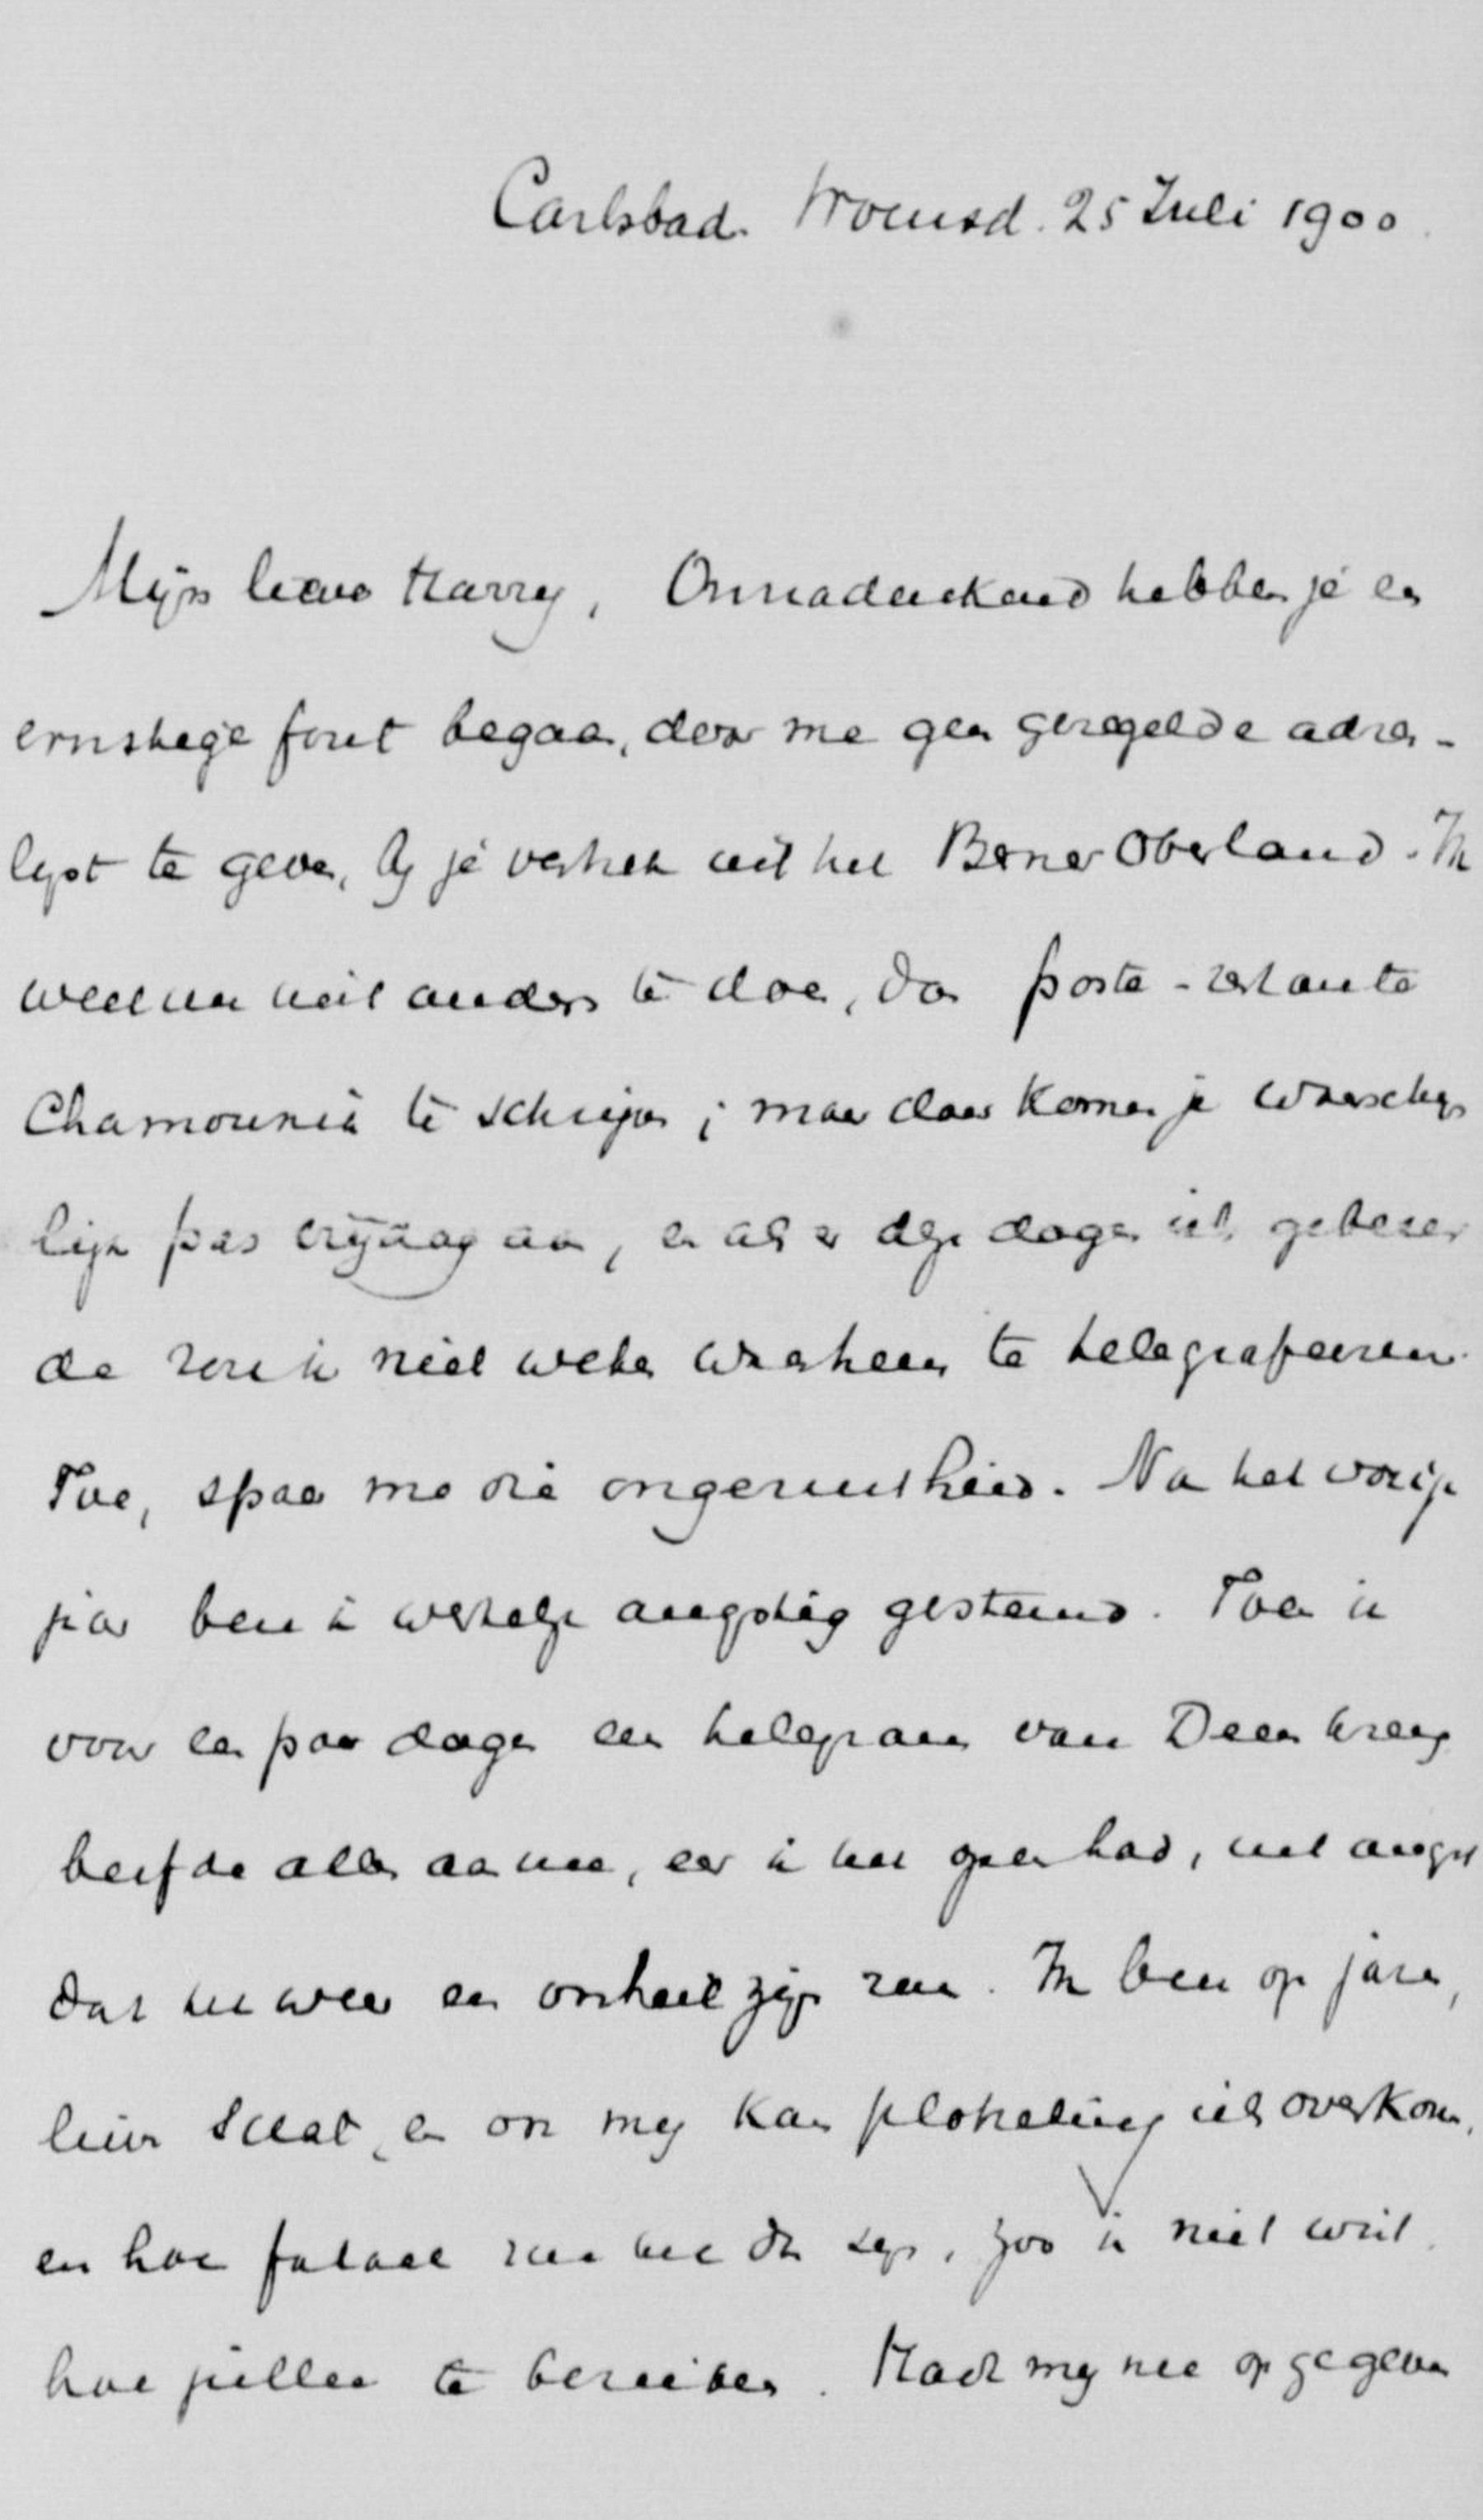 Carlsbad. Woensd. 25 Juli 1900.
Mijn lieve Harry, Onnadenkend hebben je een
ernstige fout begaan, door me geen geregelde adres-
lyst te geven, bij je vertrek uit het Berner Oberland. Ik
weet nu niet anders te doen, dan poste-restante
Chamounix te schrijven; maar daar komen je waarschijn
lijk pas vrijdag aan, en als er deze dagen iets gebeur
de zou ik niet weten waarheen te telegrafeeren.
Toe, spaar me die ongerustheid. Na het vorige
jaar ben ik angstig gestemd. Toen ik
voor een paar dagen een telegram van Deen kreeg
beefde alles aan me, eer ik het open had, uit angst
dat het weer een onheil zijn zou. Ik ben op jaren,
lieve schat, en ook mij kan plotseling iets overkomen,
en hoe fataal zou het dan zijn, zoo ik niet wist
hoe jullie te bereiken. Hadt mij nu opgegeven